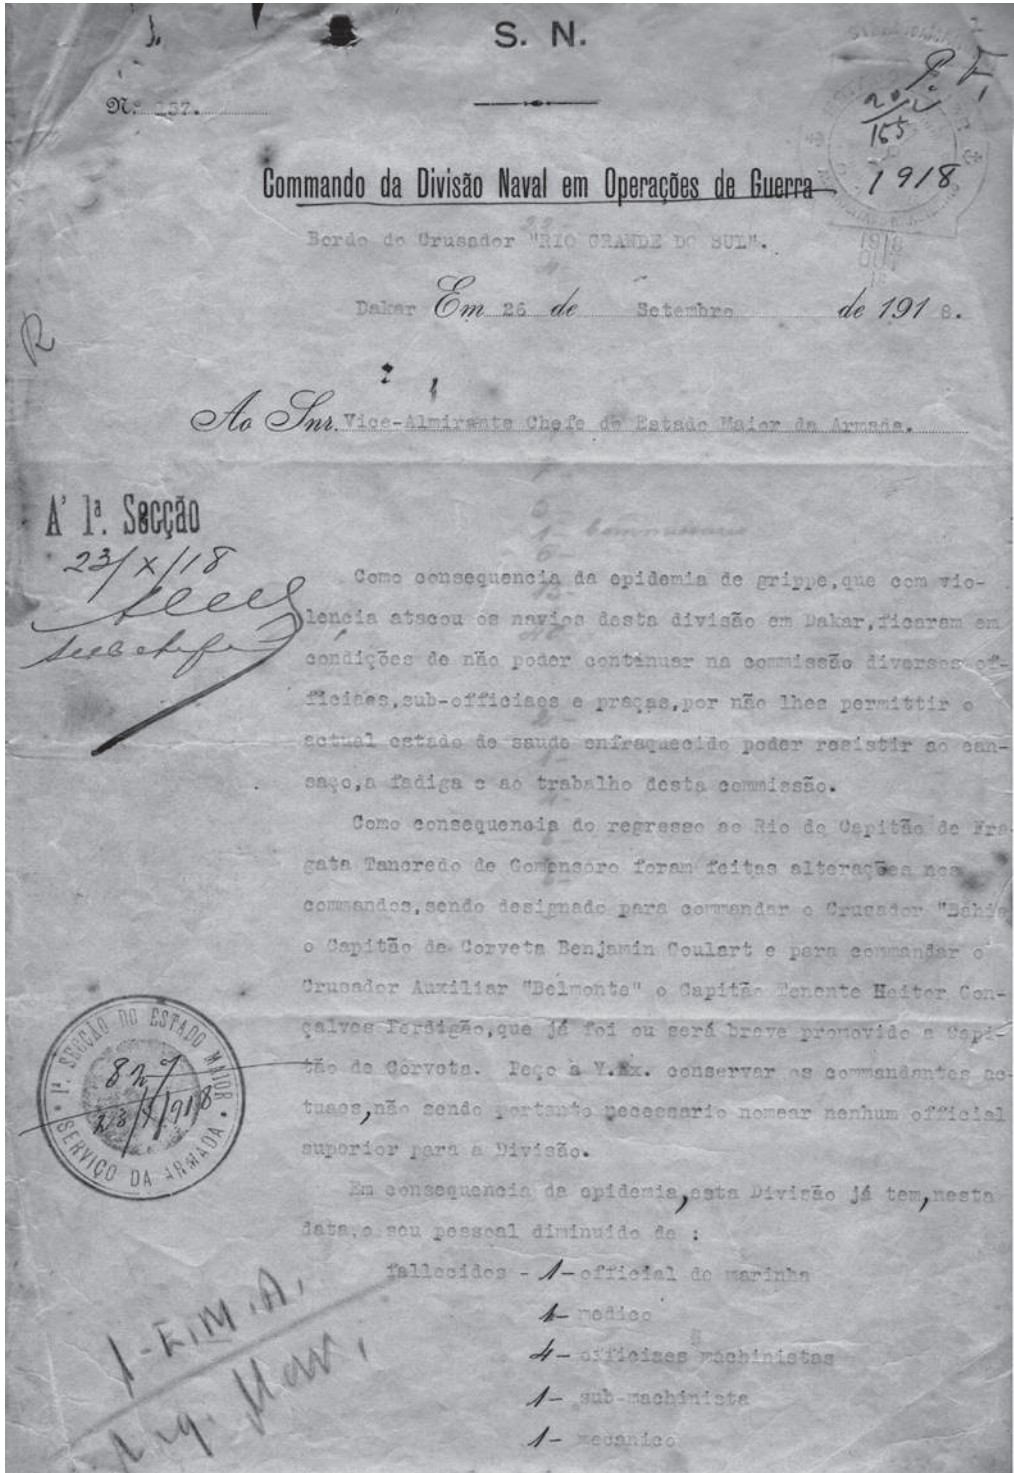 S. N.
Nº 157.
1918
Commando da Divisão Naval em Operações de Guerra
Bordo do Crusador "RIO GRANDE DO SUL".
Dakar Em 26 de Setembro de 1918.
R
Ao Snr. Vice-Almirante Chefe do Estado Maior da Armada.
A' 1ª. Secção
23/X/18
Como consequencia da epidemia de grippe,que com vio-
lencia atacou os navios desta divisão em Dakar,ficaram em
condições de não poder continuar na commissão diversos of-
ficiaes,sub-officiaes e praças,por não lhes permittir o
actual estado de saude enfraquecido poder resistir ao can-
saço,a fadiga e ao trabalho desta commissão.
Como consequencia do regresso ao Rio do Capitão de Fra-
gata Tancredo de Gomensoro foram feitas alterações nos
commandos,sendo designado para commandar o Crusador "Bahia
o Capitão de Corveta Benjamin Goulart e para commandar o
Crusador Auxiliar "Belmonte" o Capitão Tenente Heitor Gon-
çalves Perdigão,que já foi ou será breve promovido a Capi-
tão de Corveta. Peço à V.Ex. conservar os commandantes ac-
tuaes,não sendo portanto necessario nomear nenhum official
superior para a Divisão.
1ª SECÇÃO DO ESTADO MAIOR
827
23/X/918
SERVIÇO DA ARMADA
Em consequencia da epidemia,esta Divisão já tem,nesta
data,o seu pessoal diminuido de :
fallecidos - 1- official de marinha
1- medico
4- officiaes machinistas
1- sub-machinista
1- mecanico
1-E.M.A.